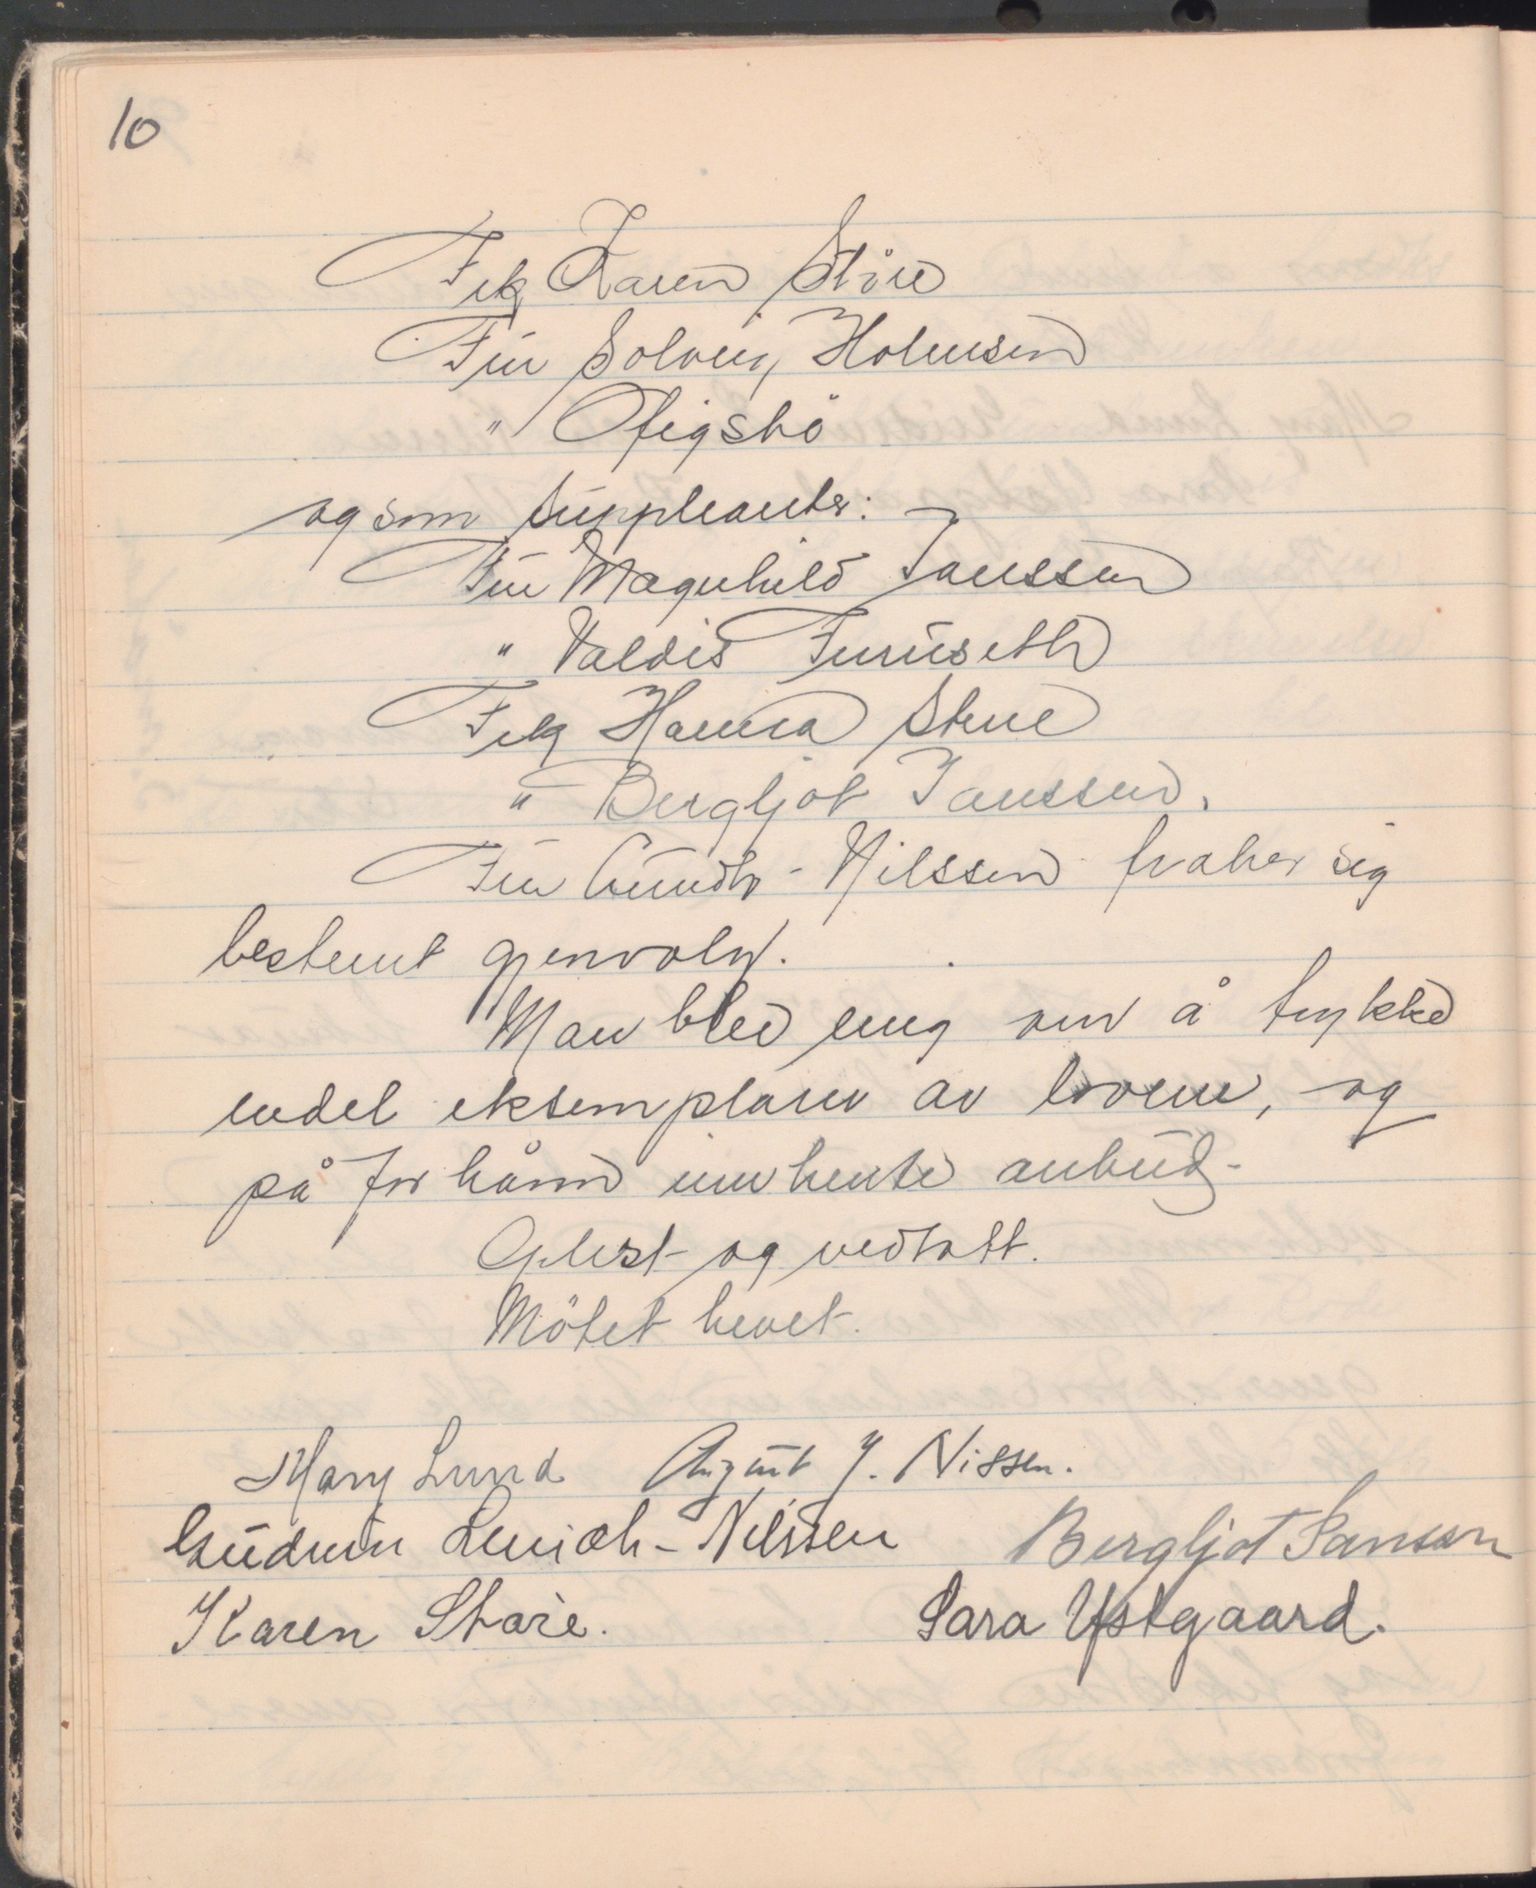 10
Frk Karen Störe
Fru Solveig Holmsen
" Ofigsbö
og som suppleanter:
Fru Magnhild Janssen
" Valdis Furuseth
Frk Hanna Strue
" Bergljot Janssen.
Fru Gundh-Nilssen fraber sig
bestemt gjenvalg.
Man blev enig om å trykke
endel eksemplarer av lovene, og
på forhånd innhente anbud.
Oplest og vedtatt.
Mötet hevet.
Mary Lund August Y. Nissen.
Gudrun -Nilssen Bergljot Janssen
Karen Støre. Sara Ystgaard.